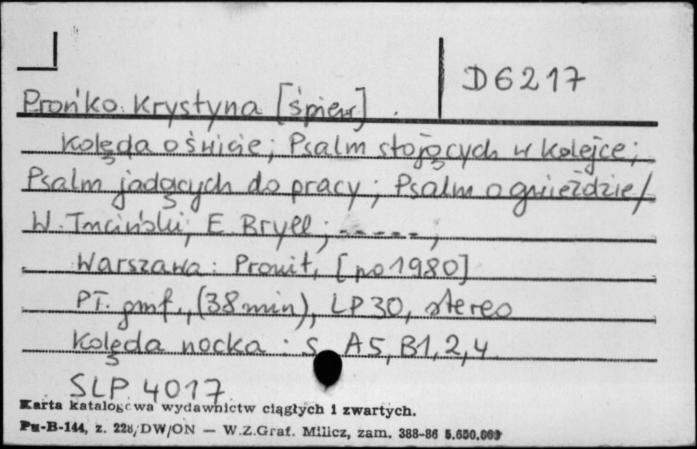 D6217
Prońko Krystyna [śpiew]
Kolęda o świcie; Psalm stojących w kolejce;
Psalm jadących do pracy; Psalm o gnieździe/
W. Trzciński, E. Bryll; -----;
Warszawa: Pronit, [po 1980]
Pł. gmf., (38 min), LP 30, stereo
Kolęda nocka: S. A5, B1, 2, 4
SLP 4017
Karta katalogowa wydawnictw ciągłych i zwartych.
Pu-B-144, z. 228/DW/ON — W.Z.Graf. Milicz, zam. 388-86 5.650.000